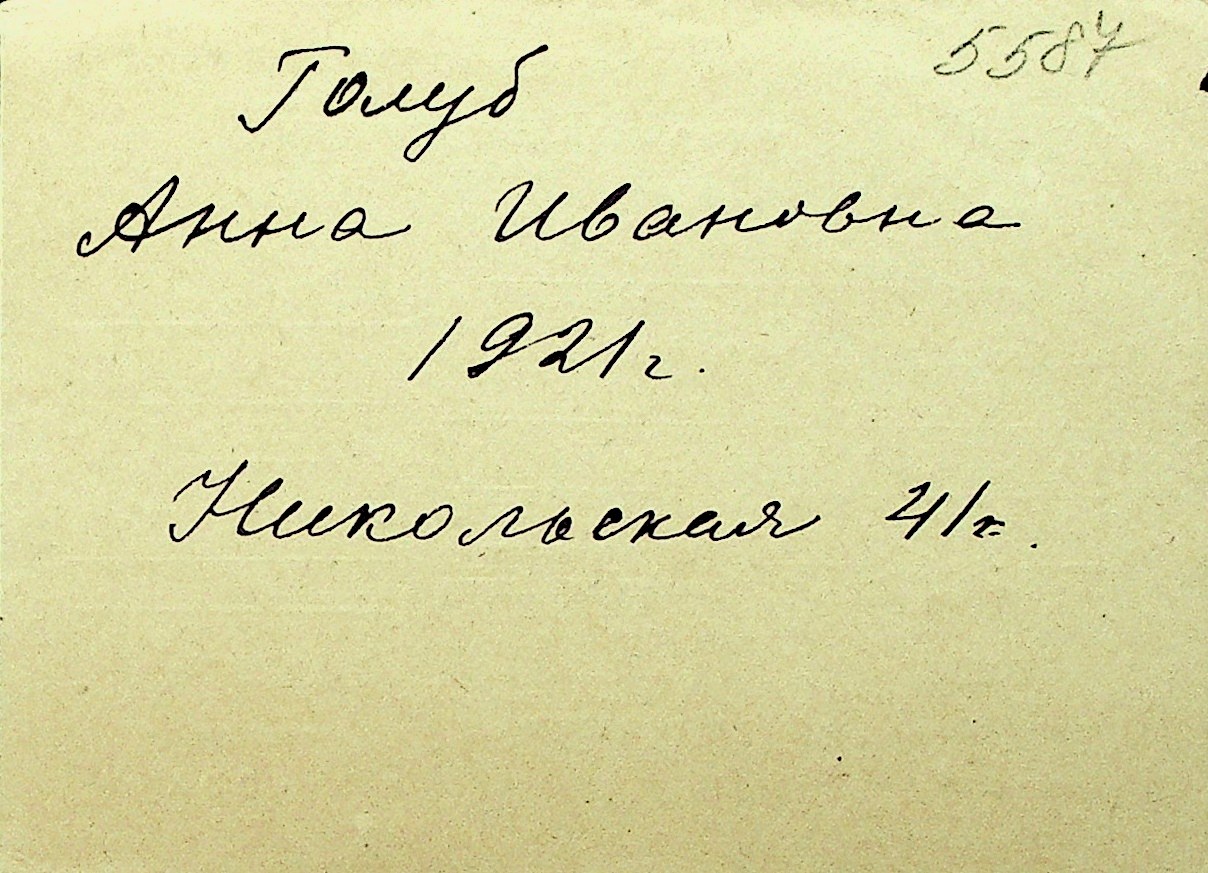 5587
Голуб
Анна Ивановна
1921г.
Никольская